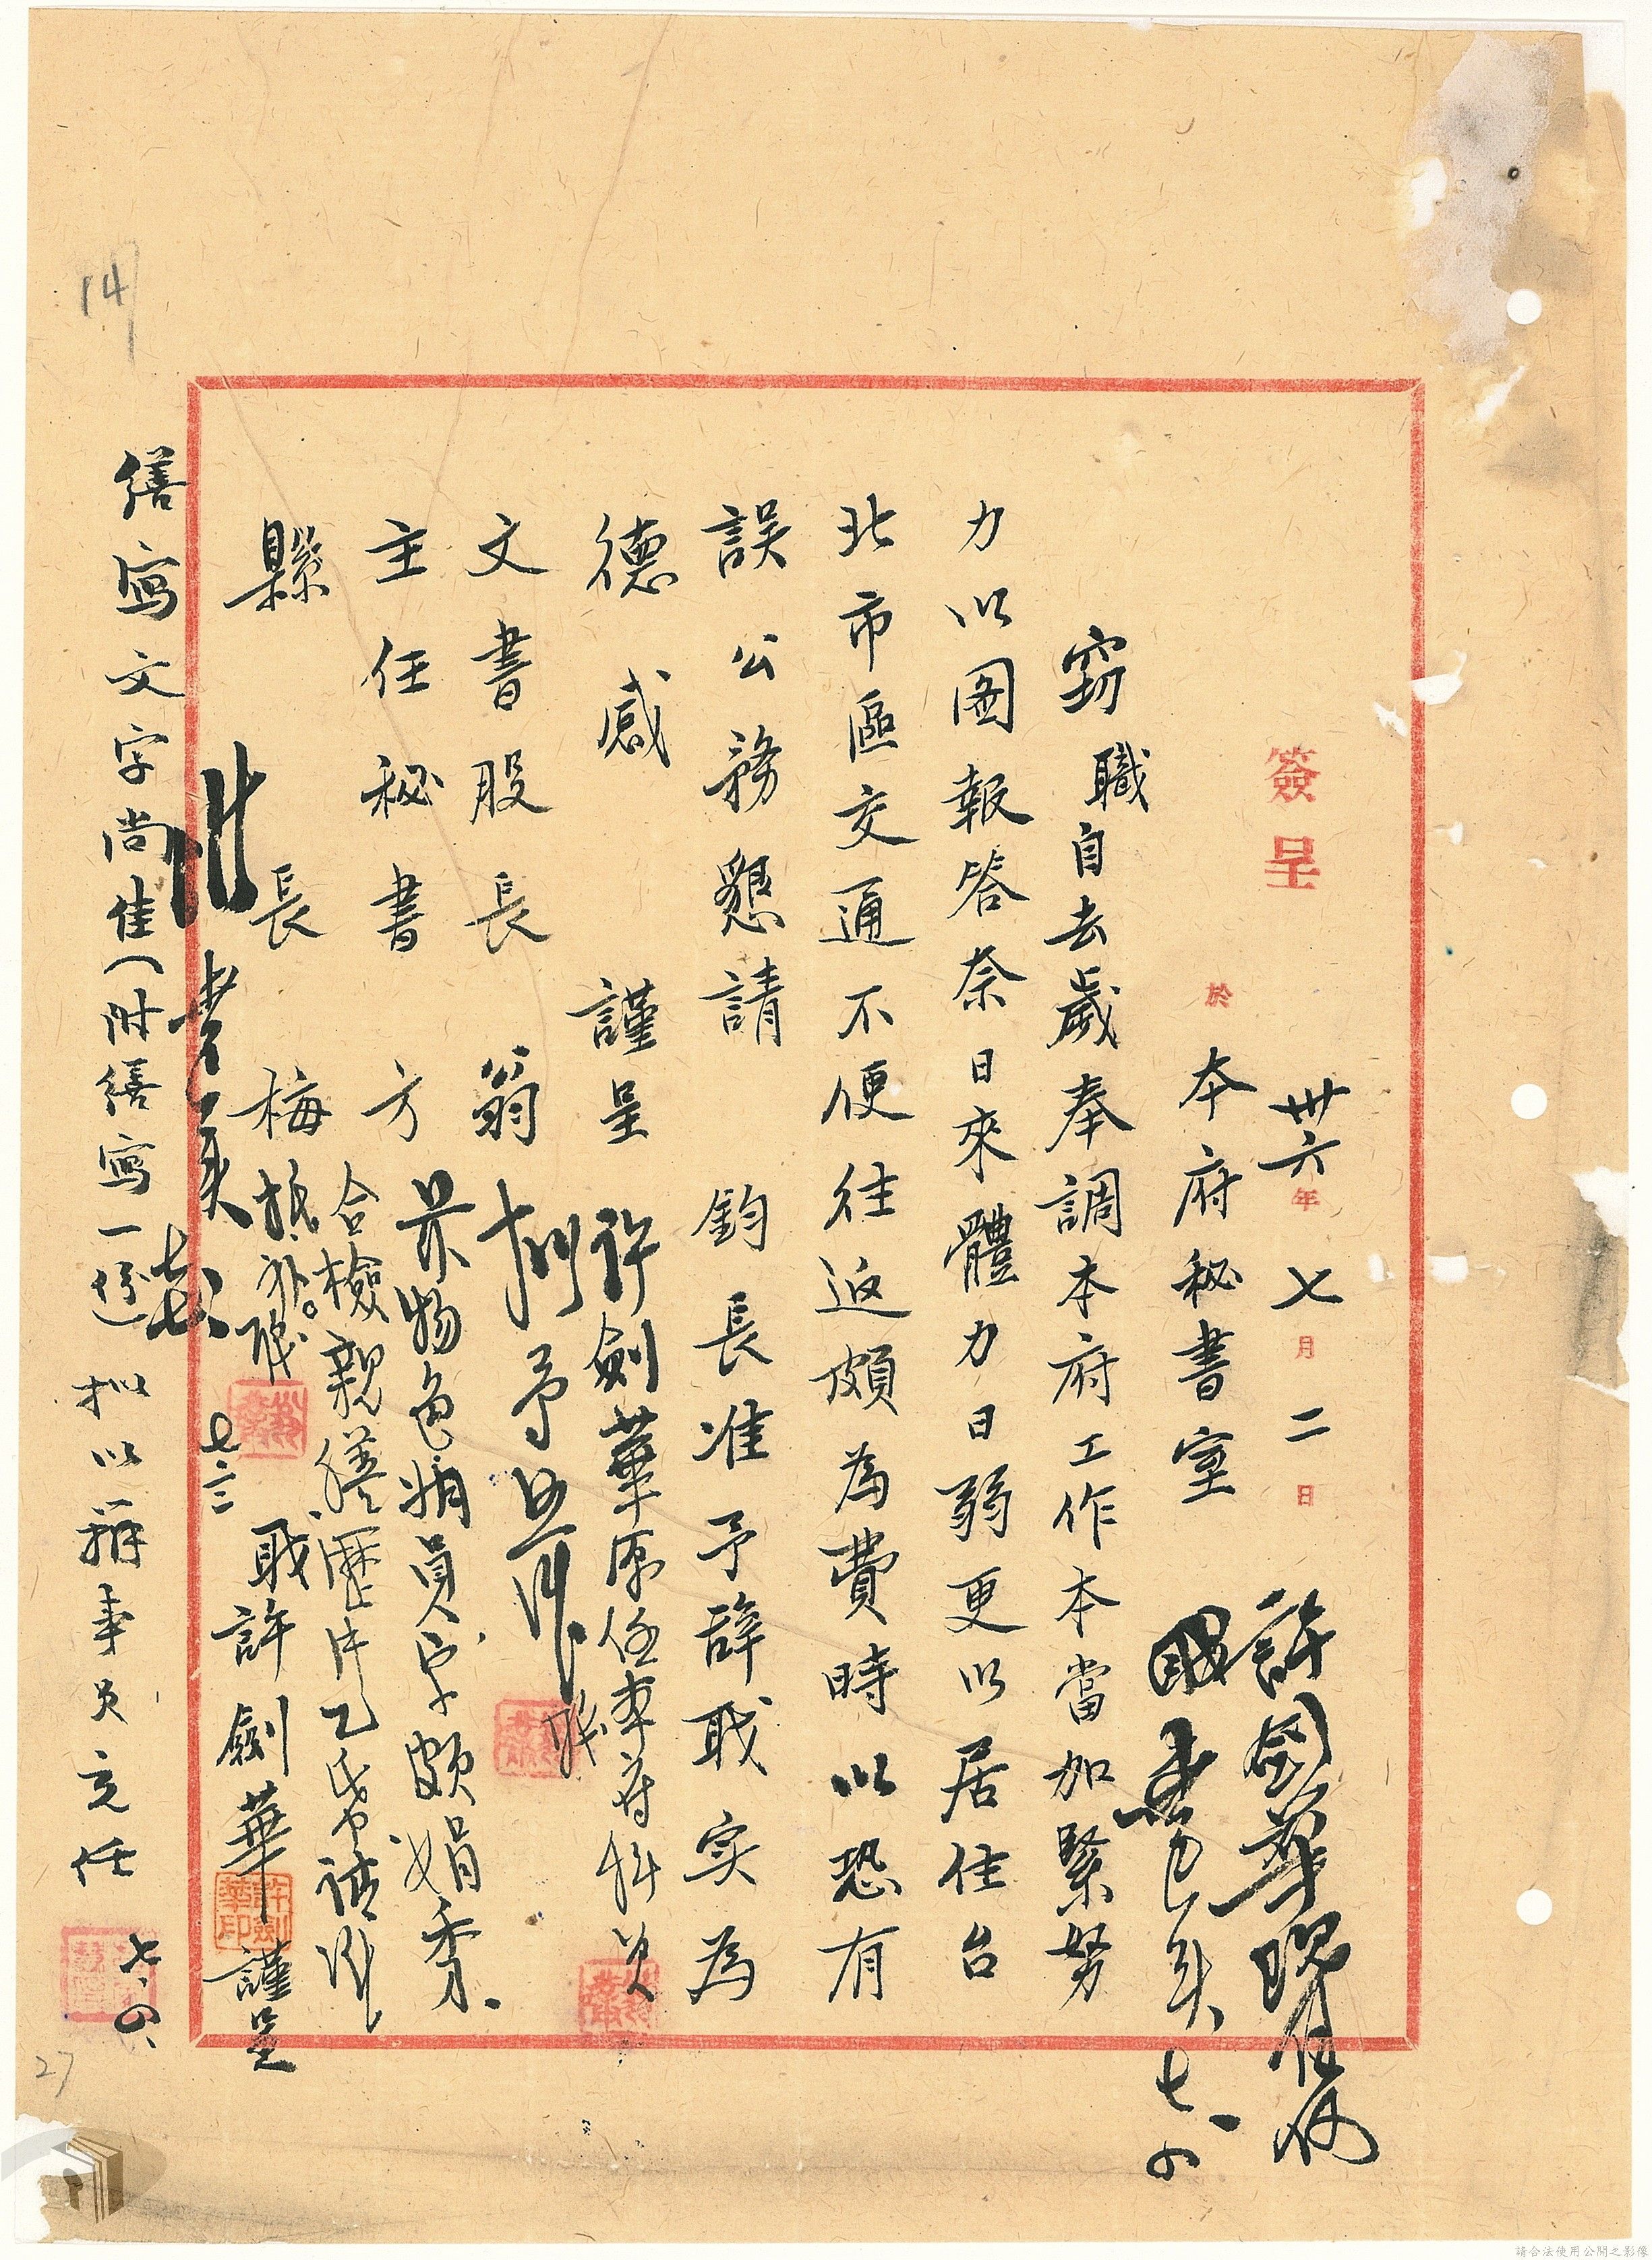 簽呈
卅六年七月二日
於本府秘書室
竊職自去歲奉調本府工作本當加緊努
力以圖報答奈日來體力日弱更以居住台
北市區交通不便往返頗為費時以恐有
誤公務懇請鈞長准予辞职实為
德感
謹呈
文書股長翁
主任秘書方
縣長梅
职許劍華謹呈
許劍華
七、四
許劍華原任本府科員
擬予照准
物色精員字頗娟秀
合檢親繕歷片乙帋請
七三
繕寫文字尚佳（附繕寫一份）拟以辦事員充任
七、四、
許劍華印
14
27
請合法使用公開之影像